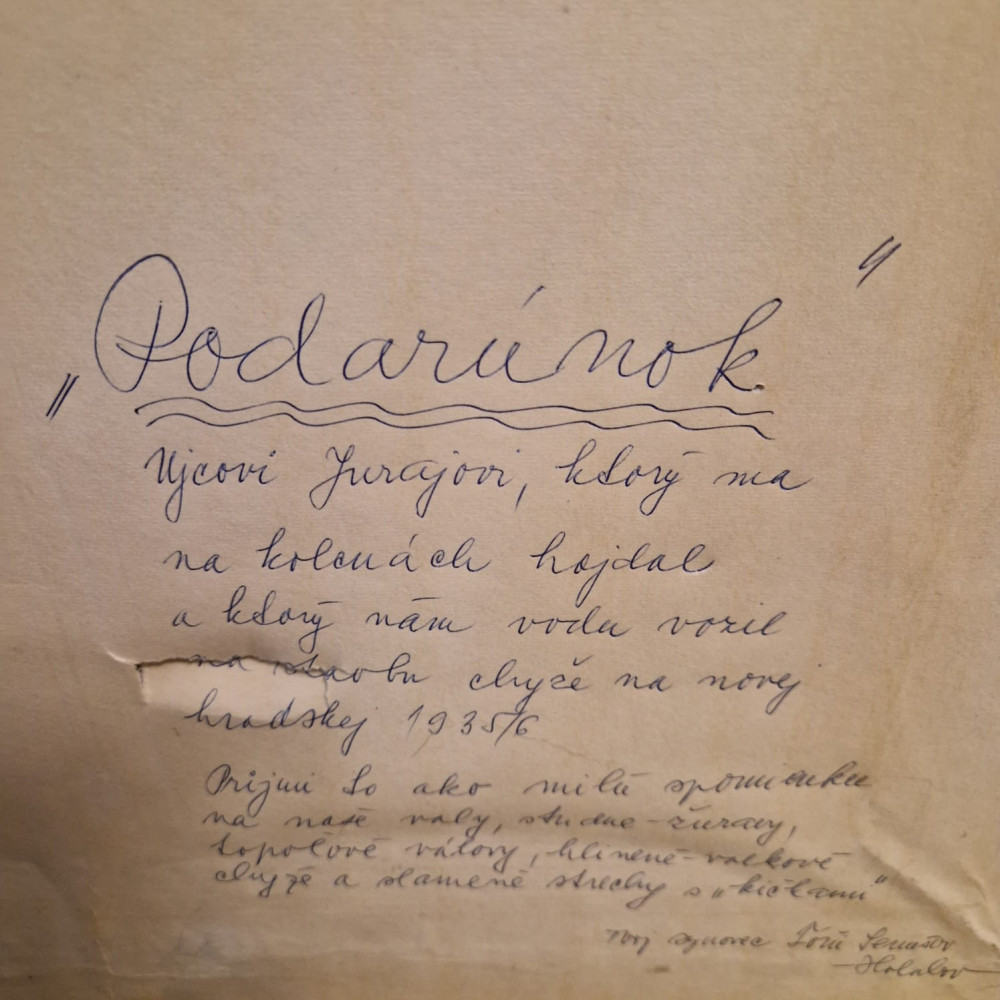 „Podarúnok"
Ujcovi Jurajovi, ktorý ma
na kolenách hojdal
a ktorý nám vodu vozil
na stavbu chyže na novej
hradskej 1935/6
Prijmi to ako milú spomienku
na naše valy, studne-žuravy,
topoľové válovy, hlinené-valkové
chyže a slamené strechy s „kičkami"
Tvoj synovec